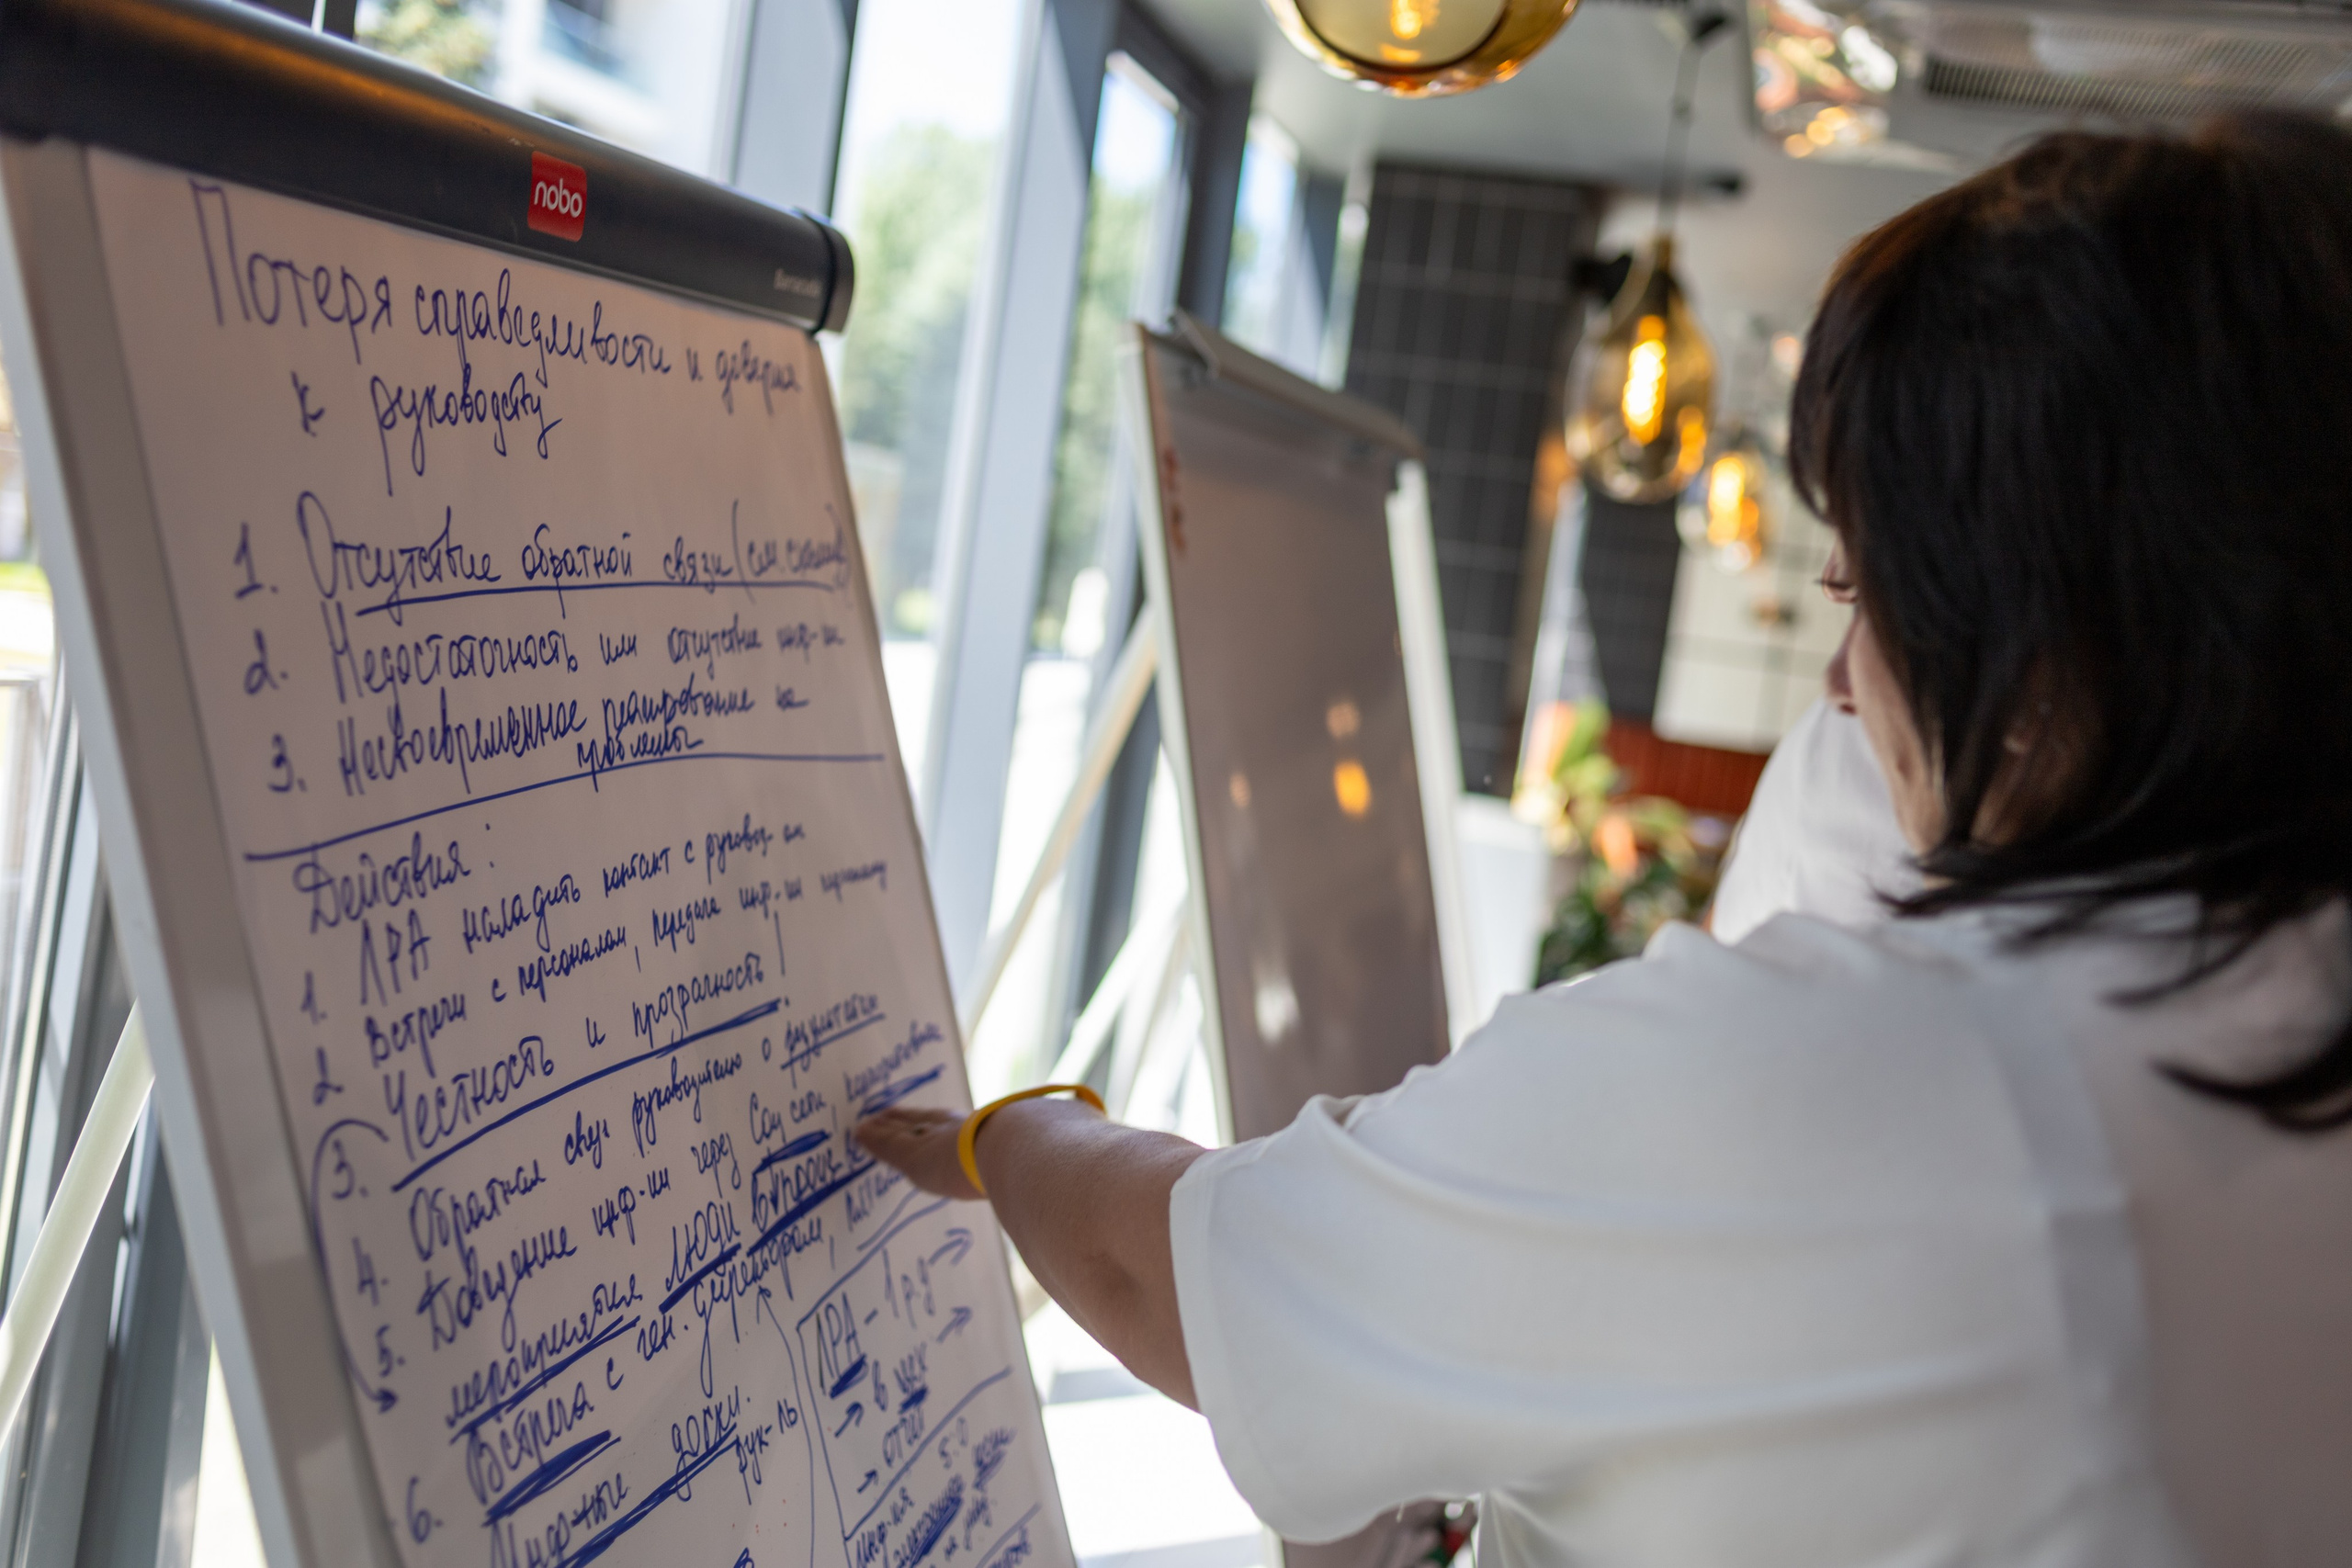 nobo
Потеря справедливости и доверия
к руководству
1. Отсутствие обратной связи
2. Недостаточность или отсутствие инф-ии
3. Несвоевременное реагирование на
проблемы
Действия:
1. ЛРА наладить контакт с руковод-ем
2 Встречи с персоналом, передача инф-ии персоналу
3. Честность и прозрачность!
4. Обратная связь руководителю о результатах
5. Доведение инф-ии через Соц сети,
мероприятия люди
6. Встреча с ген. директором,
Инф-ные доски.
рук-ль
ЛРА - 1 рд →
→ в
→ отчёт
инф-ия